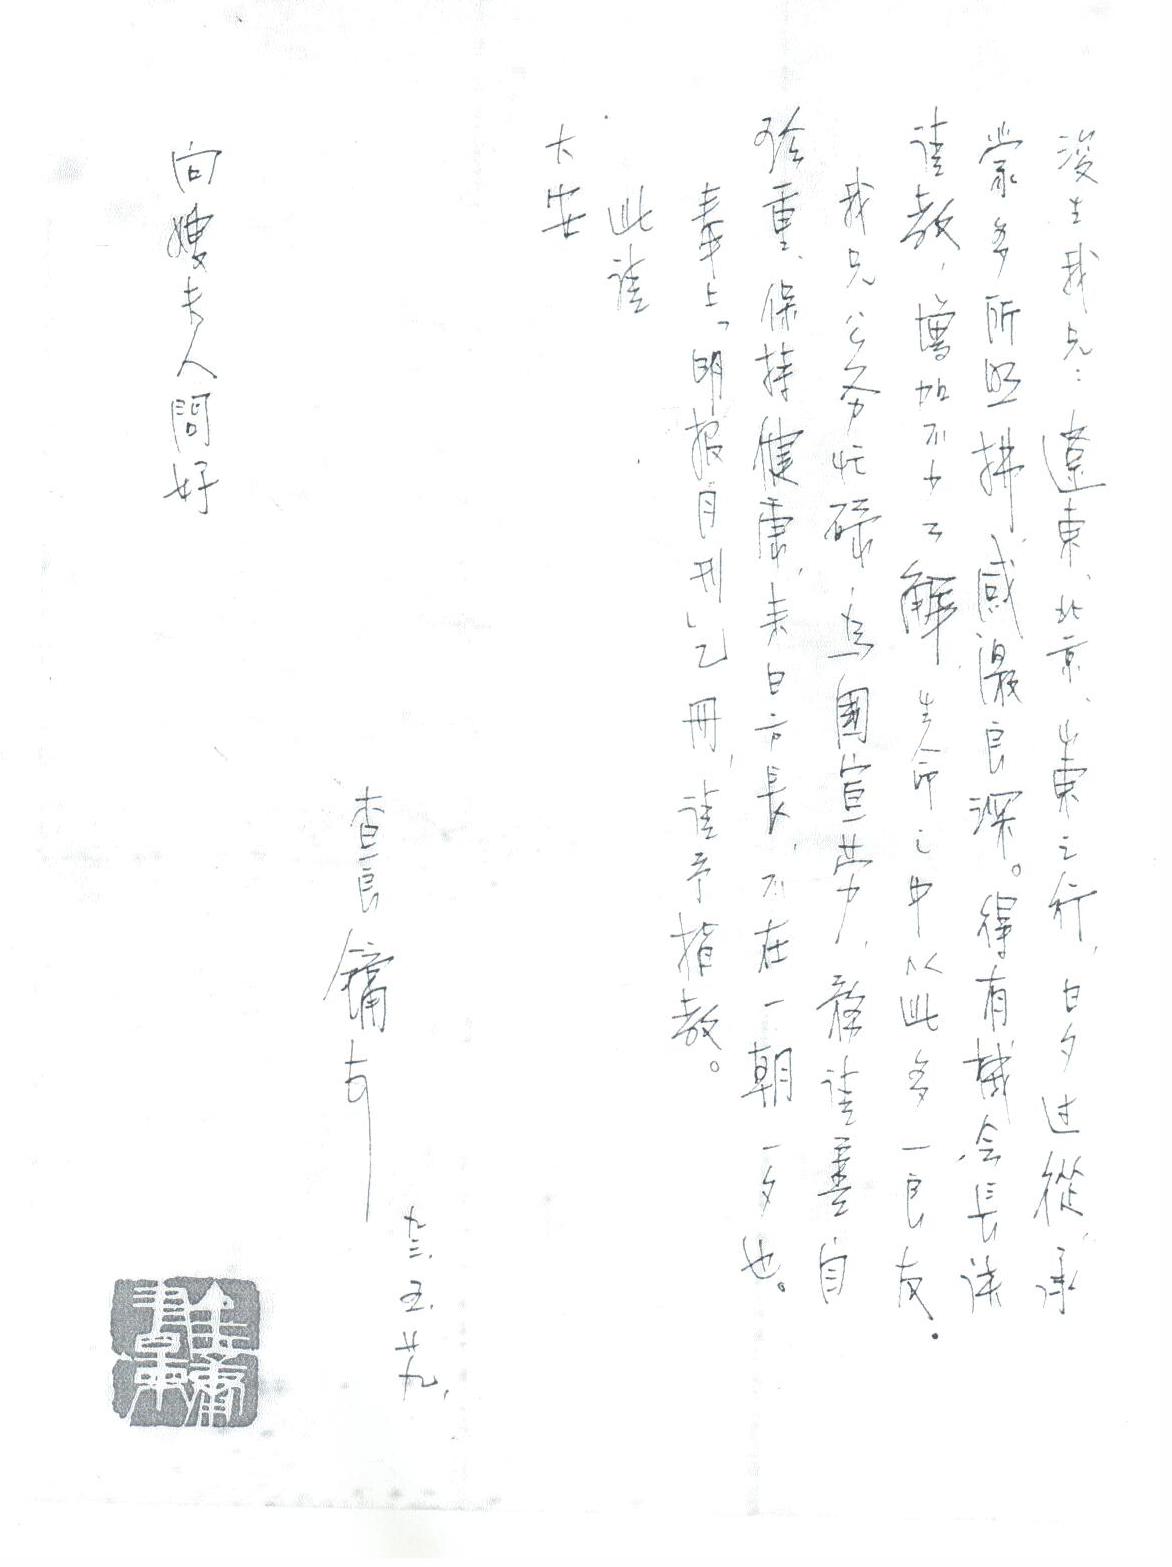 浚生我兄：遼東、北京、山東之行，日夕过從，承
蒙多所照拂，感激良深。得有機会長談
請教，增加不少了解，生命之中从此多一良友．
我兄公务忙碌，為國宣劳，務請善自
珍重、保持健康，来日方長，不在一朝一夕也。
奉上「明报月刊」乙冊，請予指教。
此請
大安
查良鏞 上
九三．五．廿九．
向嫂夫人問好
金庸書